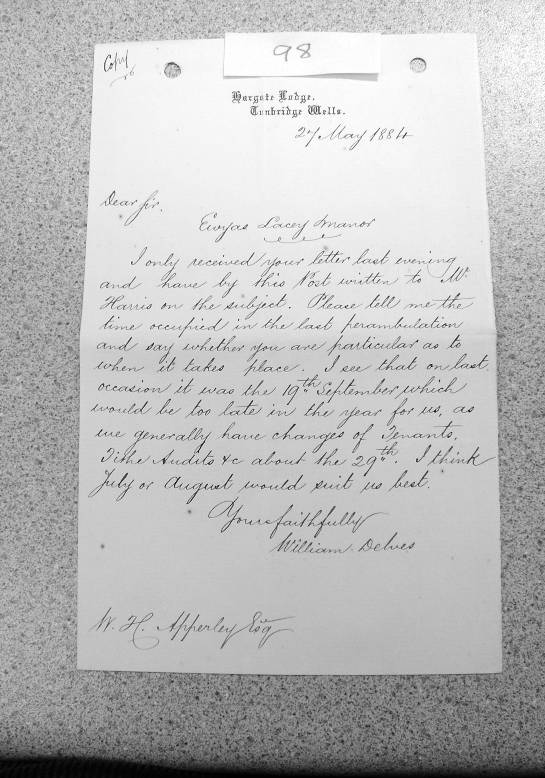 98
Copy
Hargate Lodge,
Tunbridge Wells.
27 May 1884
Dear Sir,
Ewyas Lacey Manor
I only received your letter last evening
and have by this Post written to Mr
Harris on the subject. Please tell me the
time occupied in the last perambulation
and say whether you are particular as to
when it takes place. I see that on last
occasion it was the 19th September which
would be too late in the year for us, as
we generally have changes of Tenants,
Tithe Audits &c about the 29th. I think
July or August would suit us best.
Yours faithfully
William Delves
W. H. Apperley Esq